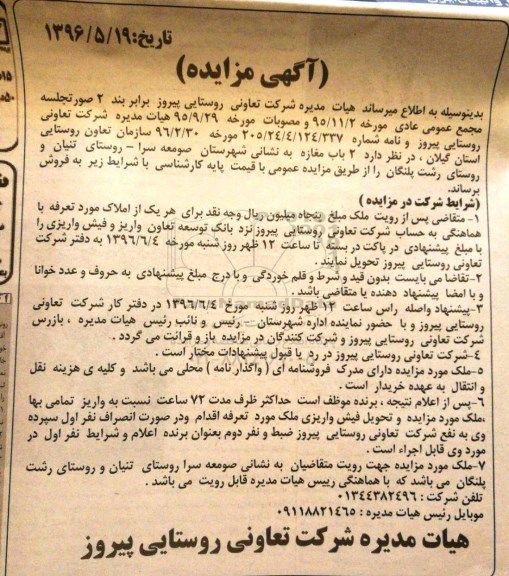 تاریخ:۱۳۹۶/۵/۱۹
(آگهی مزایده)
بدینوسیله به اطلاع میرساند هیات مدیره شرکت تعاونی روستایی پیروز برابر بند ۲ صورتجلسه
مجمع عمومی عادی مورخه ۹۵/۱۱/۲ و مصوبات مورخه ۹۵/۹/۲۹ هیات مدیره شرکت تعاونی
روستایی پیروز و نامه شماره ۲۰۵/۲۴/۴/۱۲۴/۳۳۷ مورخه ۹۶/۲/۳۰ سازمان تعاون روستایی
استان گیلان ، در نظر دارد ۲ باب مغازه به نشانی شهرستان صومعه سرا – روستای تنیان و
روستای رشت پلنگان را از طریق مزایده عمومی با قیمت پایه کارشناسی با شرایط زیر به فروش
برساند.
(شرایط شرکت در مزایده )
۱– متقاضی پس از رویت ملک مبلغ پنجاه میلیون ریال وجه نقد برای هر یک از املاک مورد تعرفه با
هماهنگی به حساب شرکت تعاونی روستایی پیروز نزد بانک توسعه تعاون واریز و فیش واریزی را
با مبلغ پیشنهادی در پاکت در بسته تا ساعت ۱۲ ظهر روز شنبه مورخه ۱۳۹۶/۶/۴ به دفتر شرکت
تعاونی روستایی پیروز تحویل نمایند .
۲–تقاضا می بایست بدون قید و شرط و قلم خوردگی و با درج مبلغ پیشنهادی به حروف و عدد خوانا
و با امضا پیشنهاد دهنده یا متقاضی باشد .
۳–پیشنهاد واصله راس ساعت ۱۲ ظهر روز شنبه مورخ ۱۳۹۶/۶/۴ در دفتر کار شرکت تعاونی
روستایی پیروز و با حضور نماینده اداره شهرستان – رئیس و نائب رئیس هیات مدیره ، بازرس
شرکت تعاونی روستایی پیروز و شرکت کنندگان در مزایده باز و قرائت می گردد .
۴–شرکت تعاونی روستایی پیروز در رد یا قبول پیشنهادات مختار است .
۵–ملک مورد مزایده دارای مدرک فروشنامه ای (واگذار نامه ) محلی می باشد و کلیه ی هزینه نقل
و انتقال به عهده خریدار است .
۶–پس از اعلام نتیجه ، برنده موظف است حداکثر ظرف مدت ۷۲ ساعت نسبت به واریز تمامی بها
،ملک مورد مزایده و تحویل فیش واریزی ملک مورد تعرفه اقدام ودر صورت انصراف نفر اول سپرده
وی به نفع شرکت تعاونی روستایی پیروز ضبط و نفر دوم بعنوان برنده اعلام و شرایط نفر اول در
مورد وی قابل اجراء است .
۷–ملک مورد مزایده جهت رویت متقاضیان به نشانی صومعه سرا روستای تنیان و روستای رشت
پلنگان می باشد که با هماهنگی رییس هیات مدیره قابل رویت می باشد .
تلفن شرکت : ۰۱۳۴۴۳۸۲۴۹۶
موبایل رئیس هیات مدیره : ۰۹۱۱۸۸۲۱۴۶۵
هیات مدیره شرکت تعاونی روستایی پیروز